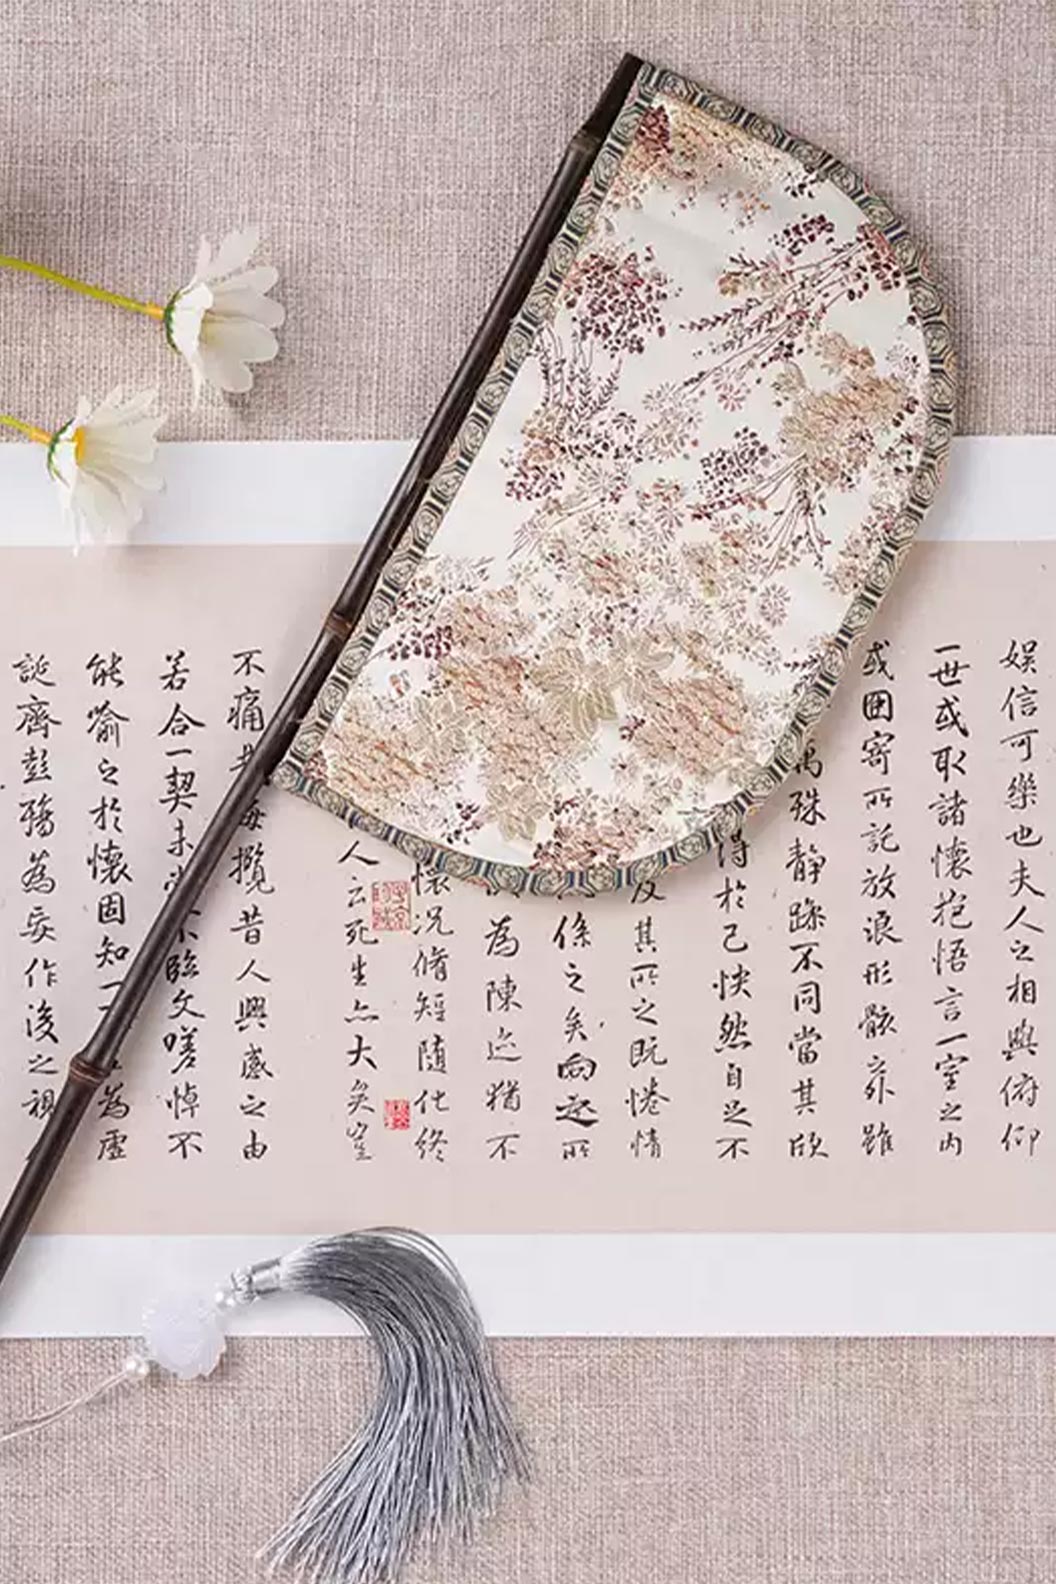 娱信可樂也夫人之相與俯仰
一世或取諸懷抱悟言一室之内
或因寄所託放浪形骸之外雖
萬殊静躁不同當其欣
得於己怏然自足不
及其所之既惓情
係之矣向之所
為陳迹猶不
懷况脩短隨化終
人云死生亦大矣豈
不痛 每攬昔人興感之由
若合一契未 不臨文嗟悼不
能喻之於懷固知一 為虛
誕齊彭殤為妄作後之視